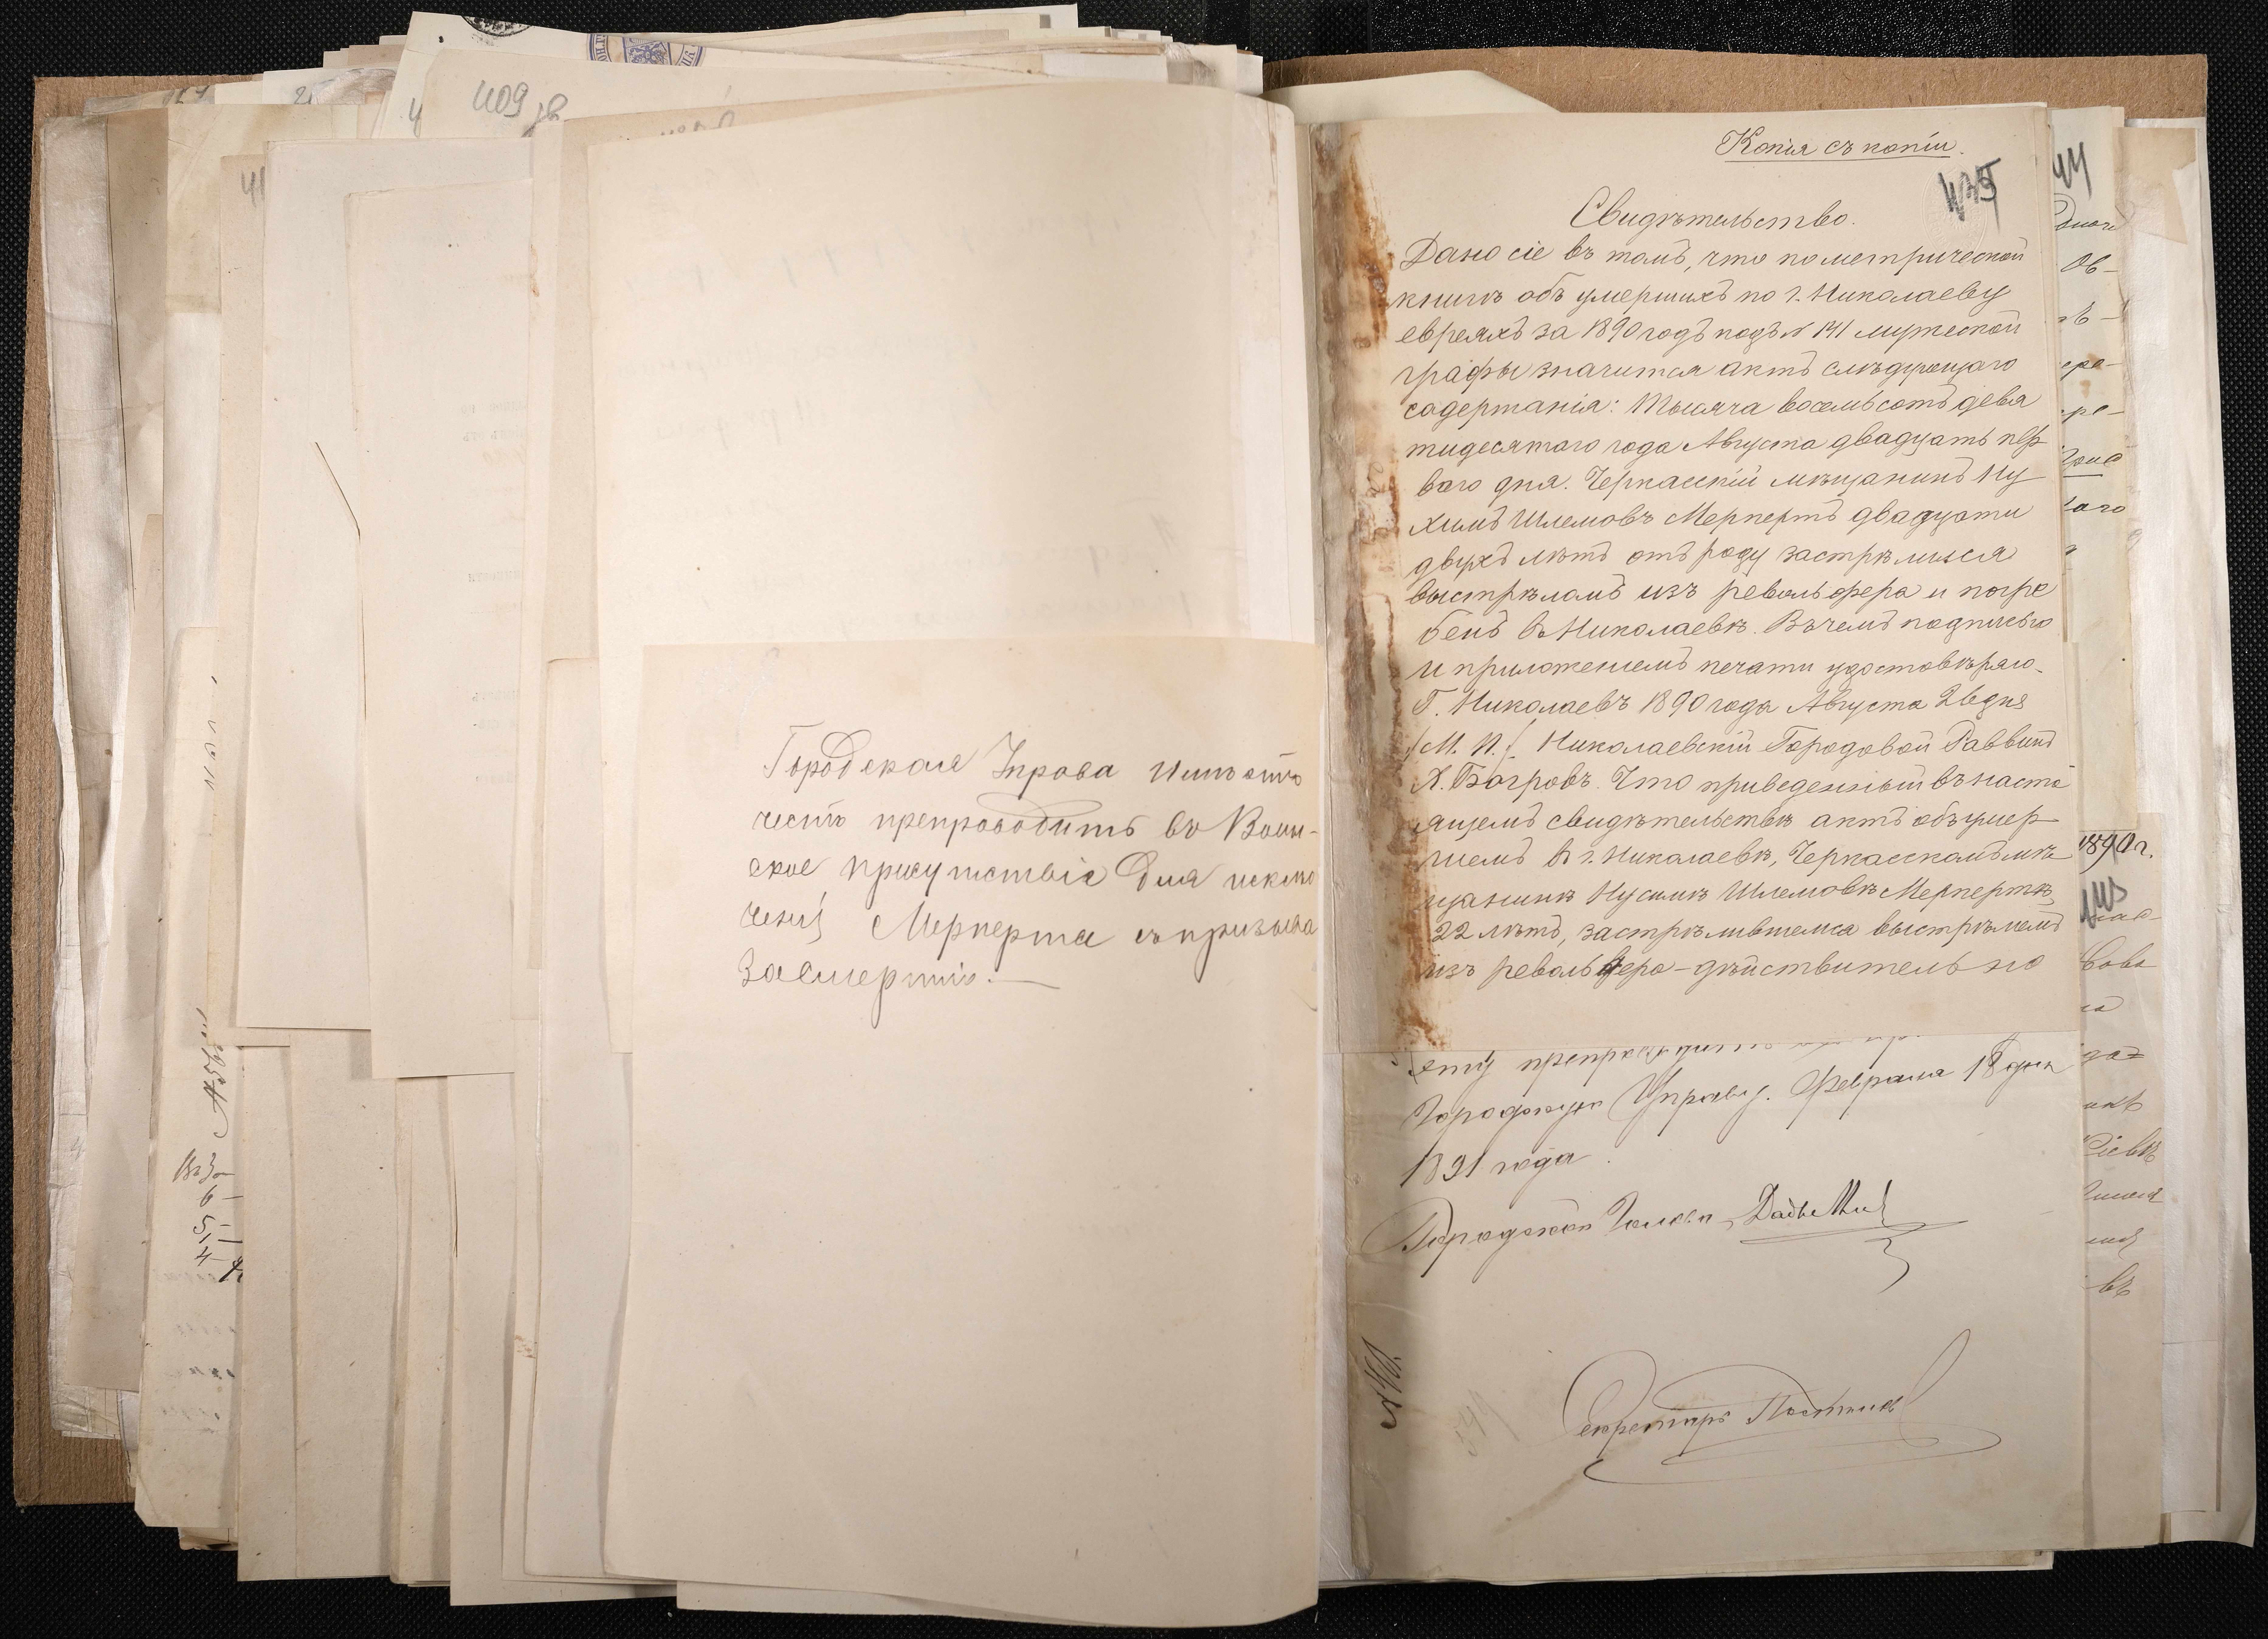 409 зв
Городская Управа имѣетъ
честь препроводить въ Воин-
ское присутствіе для исклю
ченія Мерперта съ призыва
за смертію.—
Копія съ копіи.
Свидѣтельство.
Дано сіе въ томъ, что по метрической
книгѣ объ умершихъ по г. Николаеву
евреяхъ за 1890 годъ подъ № 141 мужеской
графы значится актъ слѣдующаго
содержанія: Тысяча восемьсотъ девя
тидесятаго года Августа двадцать пер
ваго дня. Черкасскій мѣщанинъ Ну
химъ Шлемовъ Мерпертъ двадцати
двухъ лѣтъ отъ роду застрѣлился
выстрѣломъ изъ револьфера и погре
бенъ въ Николаевѣ. Въ чемъ подписью
и приложеніемъ печати удостовѣряю.
Г. Николаевъ 1890 года Августа 26 дня
/М. П./ Николаевскій Городовой Раввинъ
Х. Багровъ. Что приведенный въ насто
ящемъ свидѣтельствѣ актъ объ умер
шемъ въ г. Николаевѣ, Черкасскомъ мѣ
щанинѣ Нусимѣ Шлемовѣ Мерпертѣ,
22 лѣтъ, застрѣлившемся выстрѣломъ
изъ револьвера - дѣйствительно
ему
Городскую Управу. Февраля 18 дня
1891 года.
Городской Голова
Секретарь
1890 г.